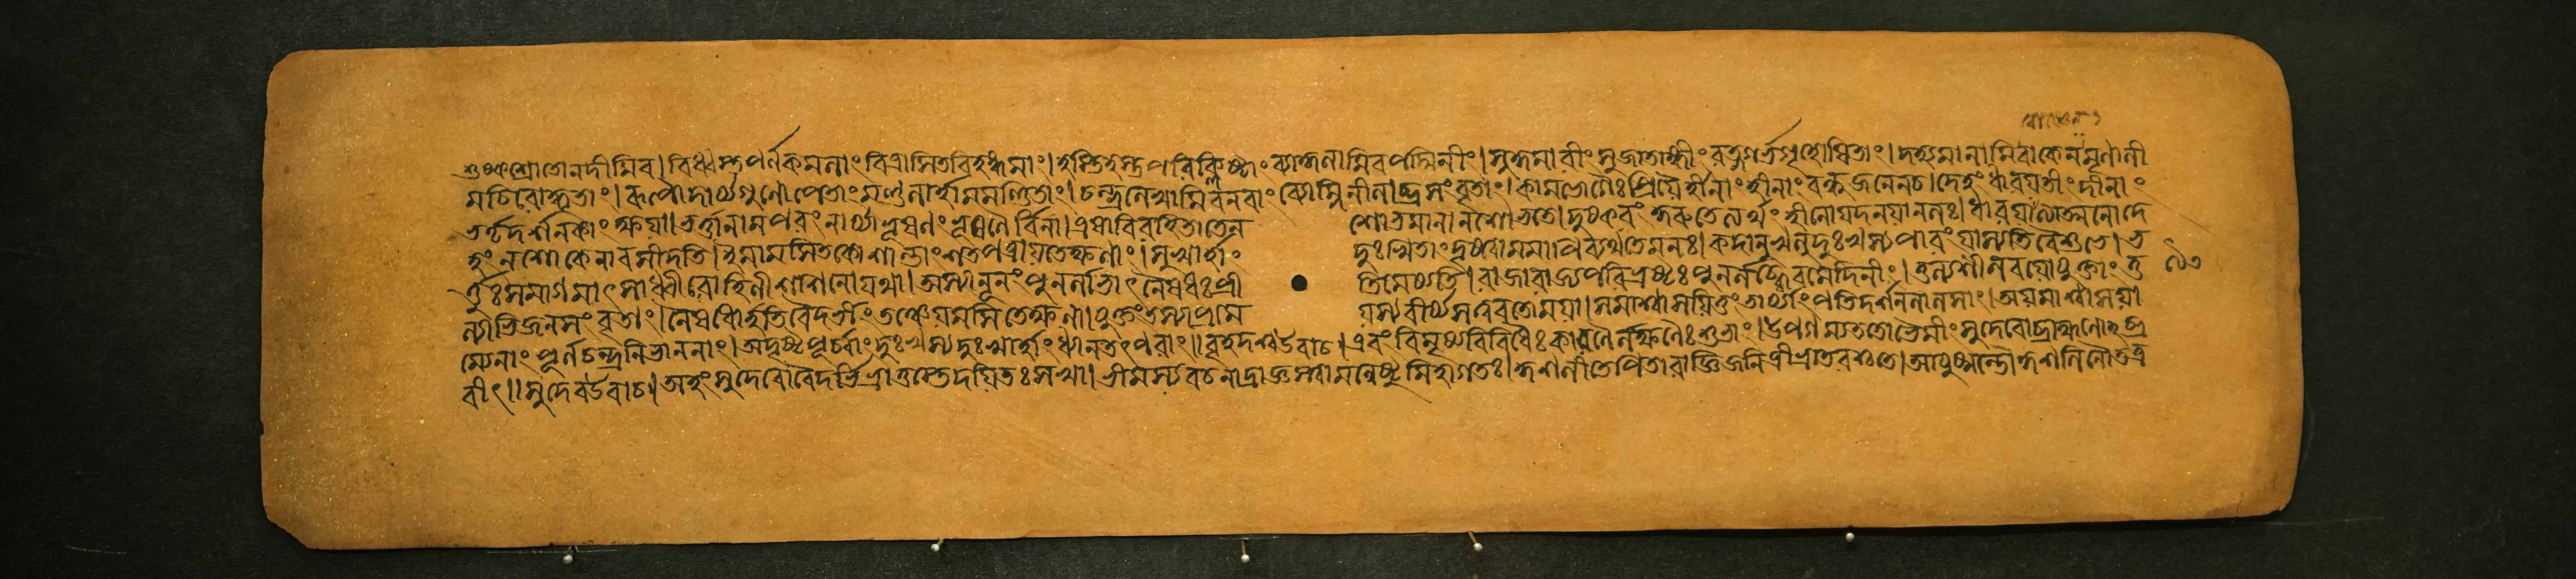 শুষ্কশ্রোতোনদীমিব। বিধ্বস্তপর্ণকমলাং বিত্রাসিতবিহঙ্গমাং। হস্তিহস্তপরিক্লিষ্টাং ব্যাকুলামিবপদ্মিনীং। সুকুমারীং সুজাতাঙ্গীং রত্নগর্ভগৃহোচিতাং। দহ্যমানামিবার্কেণমৃণালী
মচিরোদ্ধৃতাং। রূপৌদার্য্যগুণোপেতাং মণ্ডনার্হামমণ্ডিতাং। চন্দ্রলেখামিবনবাং ব্যোম্নিনীলাভ্রসংবৃতাং। কামভোগৈঃ প্রিয়ৈর্হীনাং হীনাং বন্ধুজনেনচ। দেহং ধারয়তীং দীনাং
ভর্তৃদর্শনকাংক্ষয়া। ভর্ত্তানামপরংনার্য্যাভূষণং ভূষণৈর্বিনা। এষাবিরহিতাতেন শোভমানানশোভতে। দুষ্করংকুরুতেত্যর্থং হীনোযদনয়ানলঃ। ধারয়ত্যাত্মনোদে
হং নশোকেনাবসীদতি। ইমামসিতকেশান্তাং শতপত্রায়তেক্ষণাং। সুখার্হাং দুঃখিতাং দৃষ্ট্বামমাপিব্যথতেমনঃ। কদানুখলুদুঃখস্যপারং যাস্যতিবৈশুভা। ভ
র্ত্তুঃসমাগমাৎসাধ্বীরোহিণীশশিনোযথা। অস্যানূনংপুনর্লাভাৎনৈষধঃপ্রী তিমেষ্যতি। রাজারাজ্যপরিভ্রষ্টঃপুনর্লব্ধ্বেবমেদিনীং। তুল্যশীলবয়োযুক্তাং তু
ল্যাভিজনসংবৃতাং। নৈষধোর্হতিবৈদর্ভীং তঞ্চেয়মসিতেক্ষণা। যুক্তংতস্যাপ্রমে য়স্যবীর্য্যসত্ত্ববতোময়া। সমাশ্বাসয়িতুংভার্য্যাংপতিদর্শনলালসাং। অয়মাশ্বাসয়া
ম্যেনাং পূর্ণচন্দ্রনিভাননাং। অদৃষ্টপূর্ব্বাংদুঃখস্যদুঃখার্ত্তাং ধ্যানতৎপরাং॥ বৃহদশ্বউবাচ। এবংবিমৃষ্যবিবিধৈঃকারণৈর্লক্ষণৈঃশুভাং। উপগম্যততোভৈমীং সুদেবোব্রাহ্মণোব্র
বীৎ॥ সুদেবউবাচ। অহংসুদেবোবৈদর্ভিভ্রাতুস্তেদয়িতঃসখা। ভীমস্যবচনাদ্রাজ্ঞস্ত্বামন্বেষ্টুমিহাগতঃ। কুশলীতেপিতারাজ্ঞিজনিত্রীভ্রাতরশ্চতে। আয়ুষ্মন্তৌকুশলিনৌতত্র